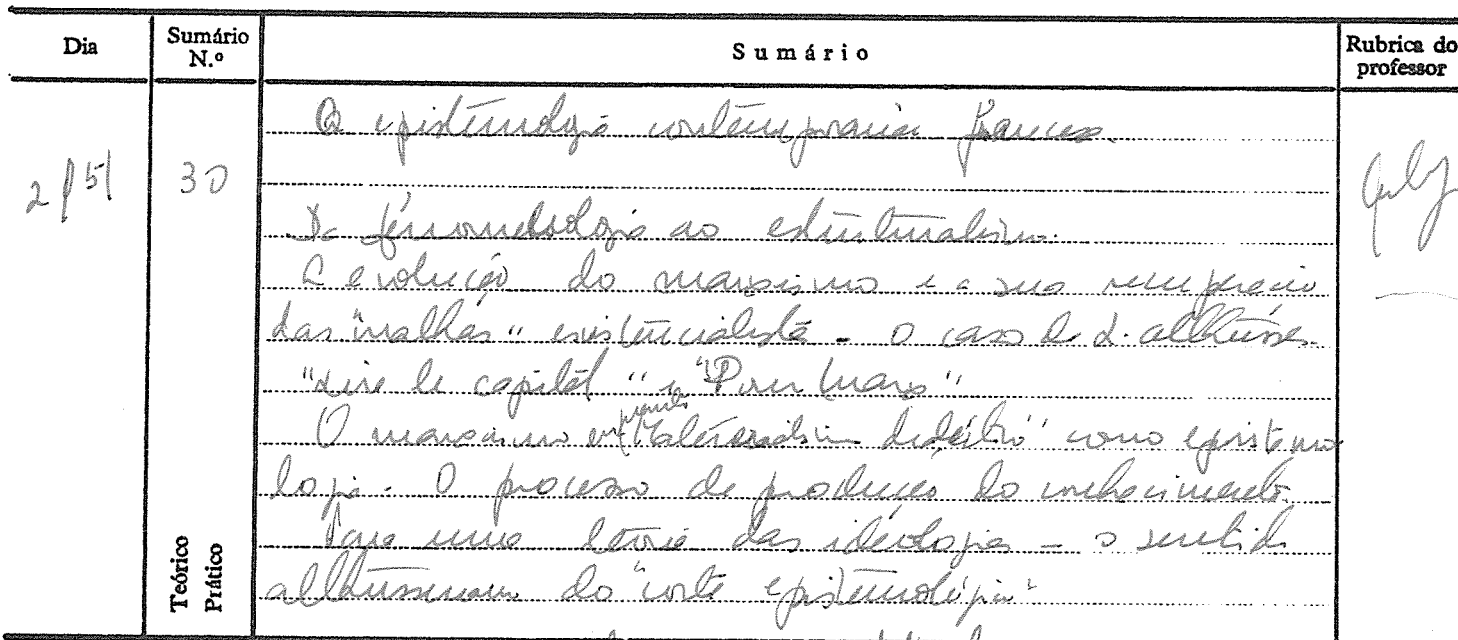 Dia
Sumário N.º
Sumário
Rubrica do professor
A epistemologia contemporanea francesa.
2/5/
30
Da fenomenologia ao estruturalismo.
A evolução do marxismo e a sua recuperação
das "malhas" existencialista - O caso de L. Althusser.
"Lire le capital" e "Pour Marx"
O marxismo enquanto "Materialismo dialéctico" como epistemo
logia. O processo de produção do conhecimento.
Para uma teoria das ideologias - o sentido
althusseriano do "corte epistemológico"
Teórico
Prático